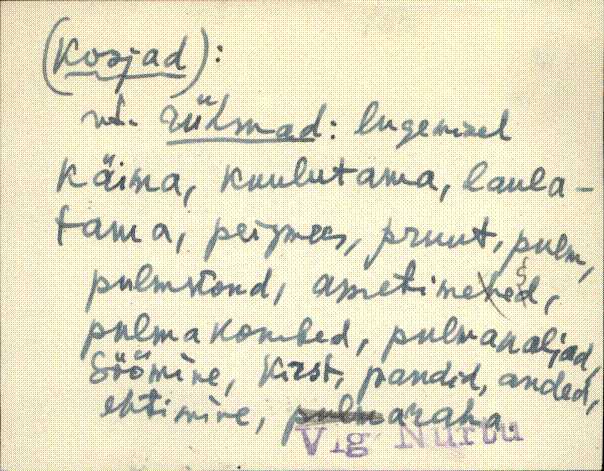 (Kosjad):
vt. rühmad: lugemisel
käima, kuulutama, laula-
tama, peigmees, pruut, pulm,
pulmkond, ametimehed,
pulmakombed, pulmanaljad,
söömine, kirst, pandid, anded,
ehtimine, araha.
Vig Nurtu